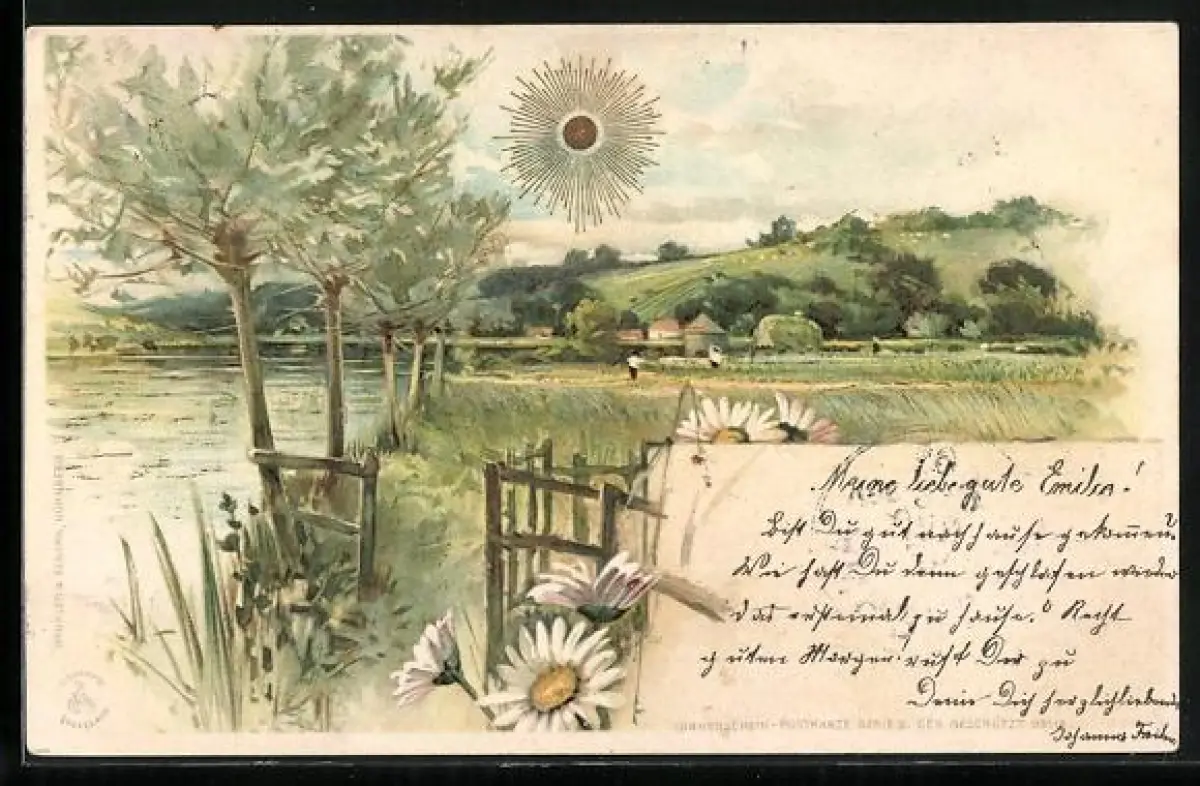 Meine liebe gute Emilin!
Bist Du gut nach hause gekommen?
Wie hast Du denn geschlafen wieder
das erstemal zu hause? Recht
guten Morgen! ruft Dir zu
Deine Dich herzlichliebende
Johanna
SONNENSCHEIN-POSTKARTE SERIE II. GES. GESCHÜTZT